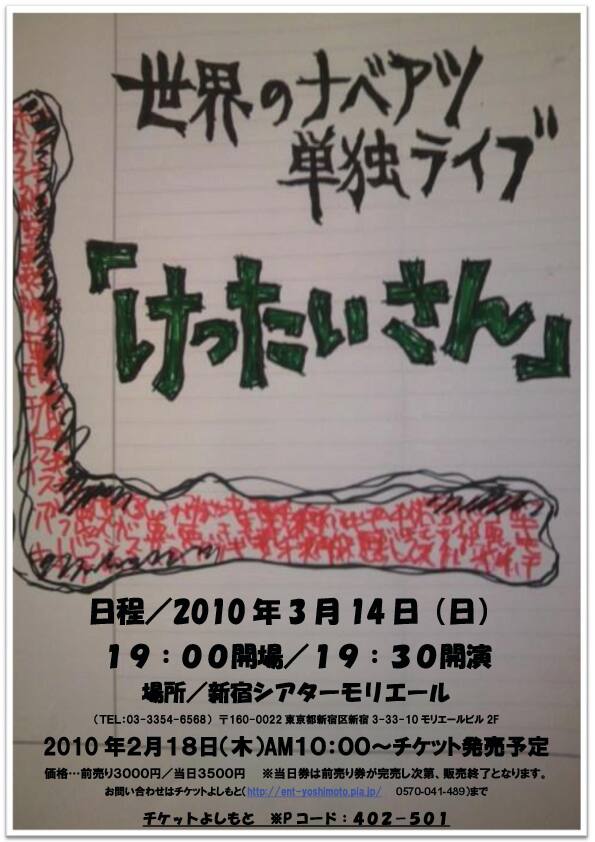 世界のナベアツ
単独ライブ
「けったいさん」
日程／2010年3月14日（日）
19：00開場／19：30開演
場所／新宿シアターモリエール
（TEL:03-3354-6568）〒160-0022 東京都新宿区新宿3-33-10 モリエールビル2F
2010年2月18日(木)AM10:00～チケット発売予定
価格…前売り3000円／当日3500円　※当日券は前売り券が完売し次第、販売終了となります。
お問い合わせはチケットよしもと(http://ent-yoshimoto.pia.jp/　0570-041-489)まで
チケットよしもと　※Pコード：402-501